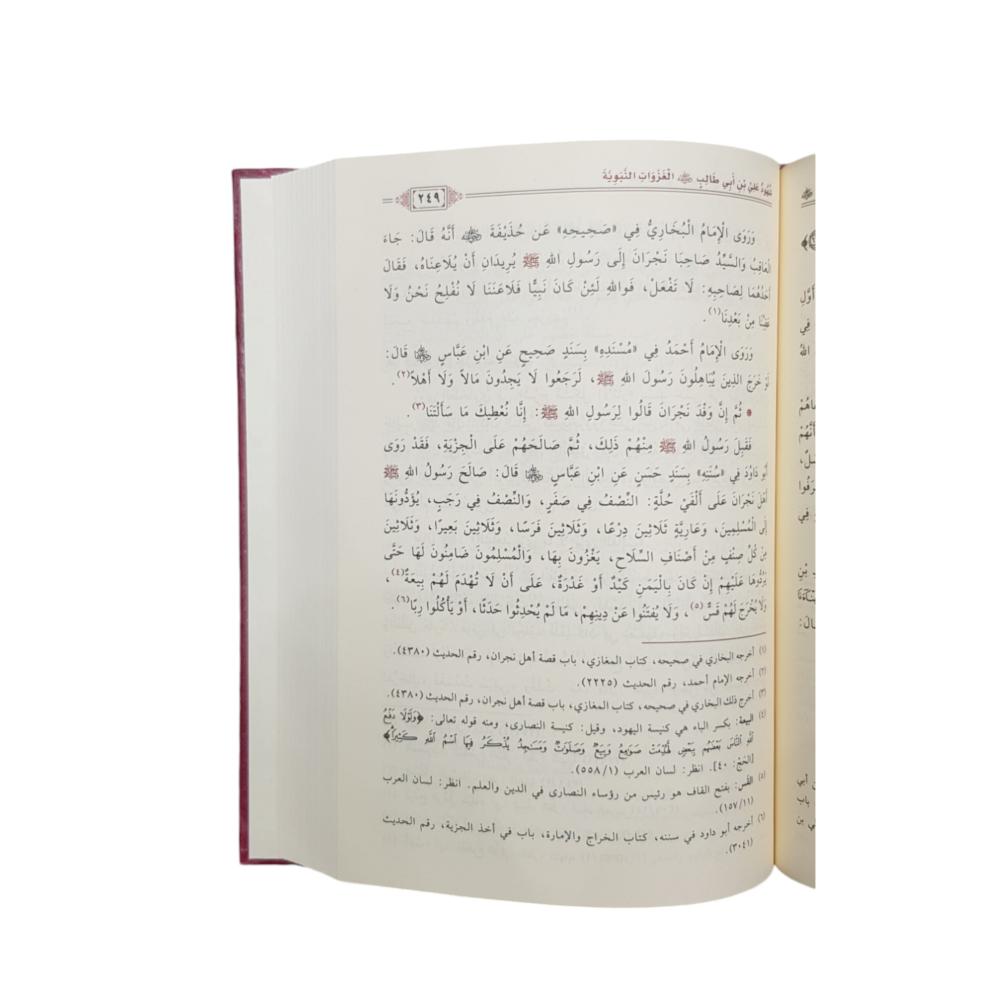 شُهُودُ عَلِيِّ بْنِ أَبِي طَالِبٍ رضي الله عنه الْغَزَوَاتِ النَّبَوِيَّةَ
٢٤٩
وَرَوَى الْإِمَامُ الْبُخَارِيُّ فِي «صَحِيحِهِ» عَن حُذَيْفَةَ رضي الله عنه أَنَّهُ قَالَ: جَاءَ
الْعَاقِبُ وَالسَّيِّدُ صَاحِبَا نَجْرَانَ إِلَى رَسُولِ اللهِ ﷺ يُرِيدَانِ أَنْ يُلَاعِنَاهُ، فَقَالَ
أَحَدُهُمَا لِصَاحِبِهِ: لَا تَفْعَلْ، فَوَاللهِ لَئِنْ كَانَ نَبِيًّا فَلَاعَنَنَا لَا نُفْلِحُ نَحْنُ وَلَا
عَقِبُنَا مِنْ بَعْدِنَا(١).
وَرَوَى الْإِمَامُ أَحْمَدُ فِي «مُسْنَدِهِ» بِسَنَدٍ صَحِيحٍ عَنِ ابْنِ عَبَّاسٍ رضي الله عنهما قَالَ:
لَوْ خَرَجَ الذِينَ يُبَاهِلُونَ رَسُولَ اللهِ ﷺ، لَرَجَعُوا لَا يَجِدُونَ مَالاً وَلَا أَهْلاً(٢).
* ثُمَّ إِنَّ وَفْدَ نَجْرَانَ قَالُوا لِرَسُولِ اللهِ ﷺ: إِنَّا نُعْطِيكَ مَا سَأَلْتَنَا(٣).
فَقَبِلَ رَسُولُ اللهِ ﷺ مِنْهُمْ ذَلِكَ، ثُمَّ صَالَحَهُمْ عَلَى الْجِزْيَةِ، فَقَدْ رَوَى
أَبُو دَاوُدَ فِي «سُنَنِهِ» بِسَنَدٍ حَسَنٍ عَنِ ابْنِ عَبَّاسٍ رضي الله عنهما قَالَ: صَالَحَ رَسُولُ اللهِ ﷺ
أَهْلَ نَجْرَانَ عَلَى أَلْفَيْ حُلَّةٍ: النِّصْفُ فِي صَفَرٍ، وَالنِّصْفُ فِي رَجَبٍ، يُؤَدُّونَهَا
إِلَى الْمُسْلِمِينَ، وَعَارِيَّةِ ثَلَاثِينَ دِرْعًا، وَثَلَاثِينَ فَرَسًا، وَثَلَاثِينَ بَعِيرًا، وَثَلَاثِينَ
مِنْ كُلِّ صِنْفٍ مِنْ أَصْنَافِ السِّلَاحِ، يَغْزُونَ بِهَا، وَالْمُسْلِمُونَ ضَامِنُونَ لَهَا حَتَّى
يَرُدُّوهَا عَلَيْهِمْ إِنْ كَانَ بِالْيَمَنِ كَيْدٌ أَوْ غَدْرَةٌ، عَلَى أَنْ لَا تُهْدَمَ لَهُمْ بِيعَةٌ(٤)،
وَلَا يُخْرَجَ لَهُمْ قَسٌّ(٥)، وَلَا يُفْتَنُوا عَنْ دِينِهِمْ، مَا لَمْ يُحْدِثُوا حَدَثًا، أَوْ يَأْكُلُوا رِبًا(٦).
(١) أخرجه البخاري في صحيحه، كتاب المغازي، باب قصة أهل نجران، رقم الحديث (٤٣٨٠).
(٢) أخرجه الإمام أحمد، رقم الحديث (٢٢٢٥).
(٣) أخرج ذلك البخاري في صحيحه، كتاب المغازي، باب قصة أهل نجران، رقم الحديث (٤٣٨٠).
(٤) البيعة: بكسر الباء هي كنيسة اليهود، وقيل: كنيسة النصارى، ومنه قوله تعالى: ﴿وَلَوْلَا دَفْعُ
اللَّهِ النَّاسَ بَعْضَهُم بِبَعْضٍ لَّهُدِّمَتْ صَوَامِعُ وَبِيَعٌ وَصَلَوَاتٌ وَمَسَاجِدُ يُذْكَرُ فِيهَا اسْمُ اللَّهِ كَثِيرًا﴾
[الحج: ٤٠]. انظر: لسان العرب (٥٥٨/١).
(٥) القَس: بفتح القاف هو رئيس من رؤساء النصارى في الدين والعلم. انظر: لسان العرب
(١٥٧/١١).
(٦) أخرجه أبو داود في سننه، كتاب الخراج والإمارة، باب في أخذ الجزية، رقم الحديث
(٣٠٤١).